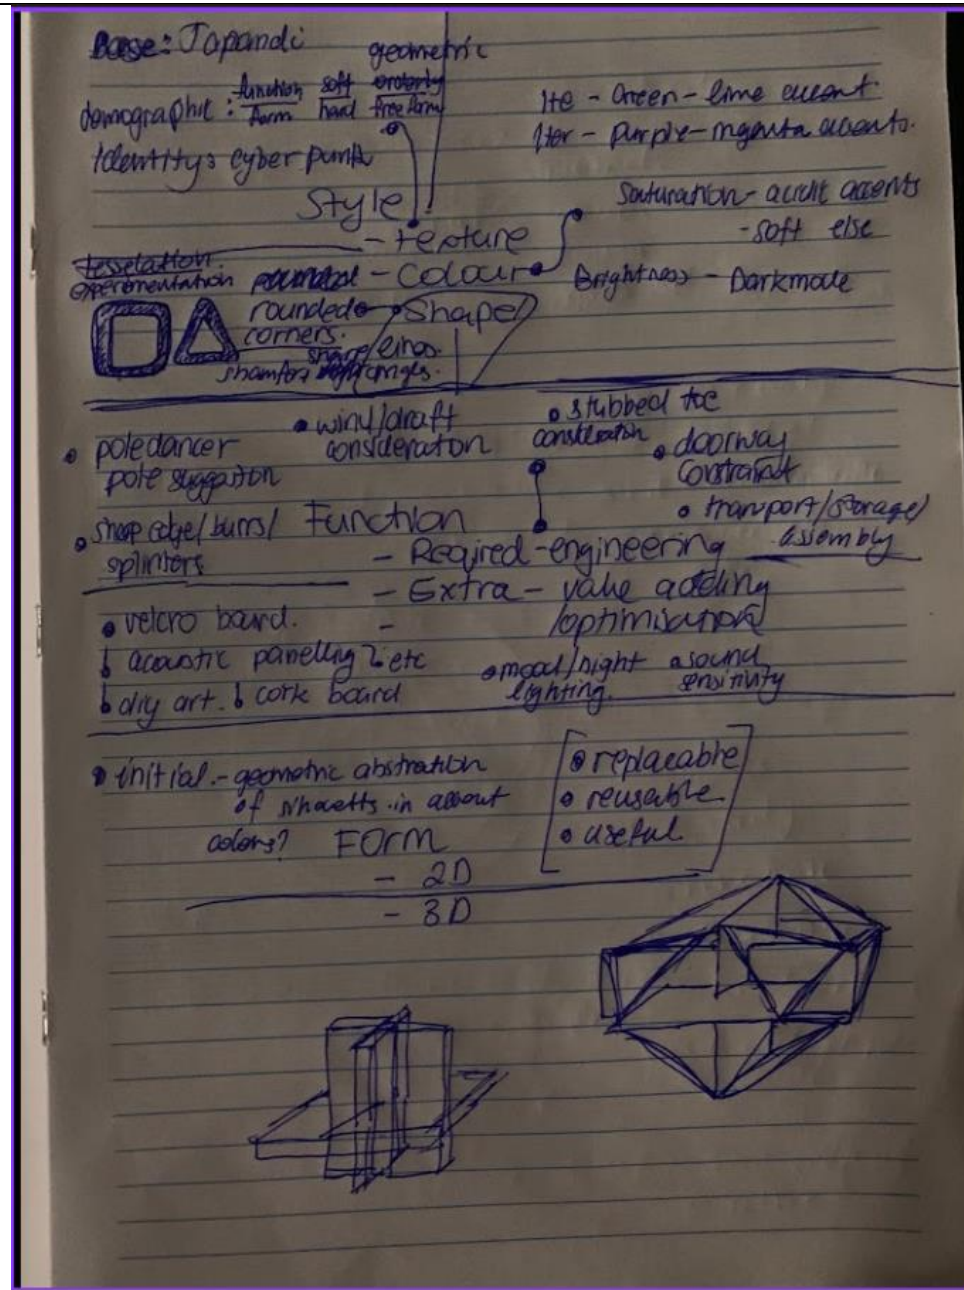 Base: Japandi
geometric
demographic: function soft orderly
form hard freeform
Identity: cyberpunk
Ite - Green - lime accent.
Iter - purple - magenta accents.
Style
- texture
Saturation - acidic accents
- soft else
tesselation
experementation
- Colour
Brightness - Darkmode
rounded
corners.
Shape
sharp/lines.
angles.
• poledancer
pole suggestion
• wind/draft
consideration
• stubbed toe
consideration
• doorway
constraint
• transport/storage/
assembly
• sharp edge/burrs/
splinters
Function
- Required - engineering
- Extra - value adding
/optimisation
• velcro board.
-
acoustic panelling etc
diy art. cork board
• mood/night
lighting.
• sound
sensitivity
• initial. - geometric abstration
of in
colors?
FOrm
- 2D
- 3D
• replacable
• reusable
• useful